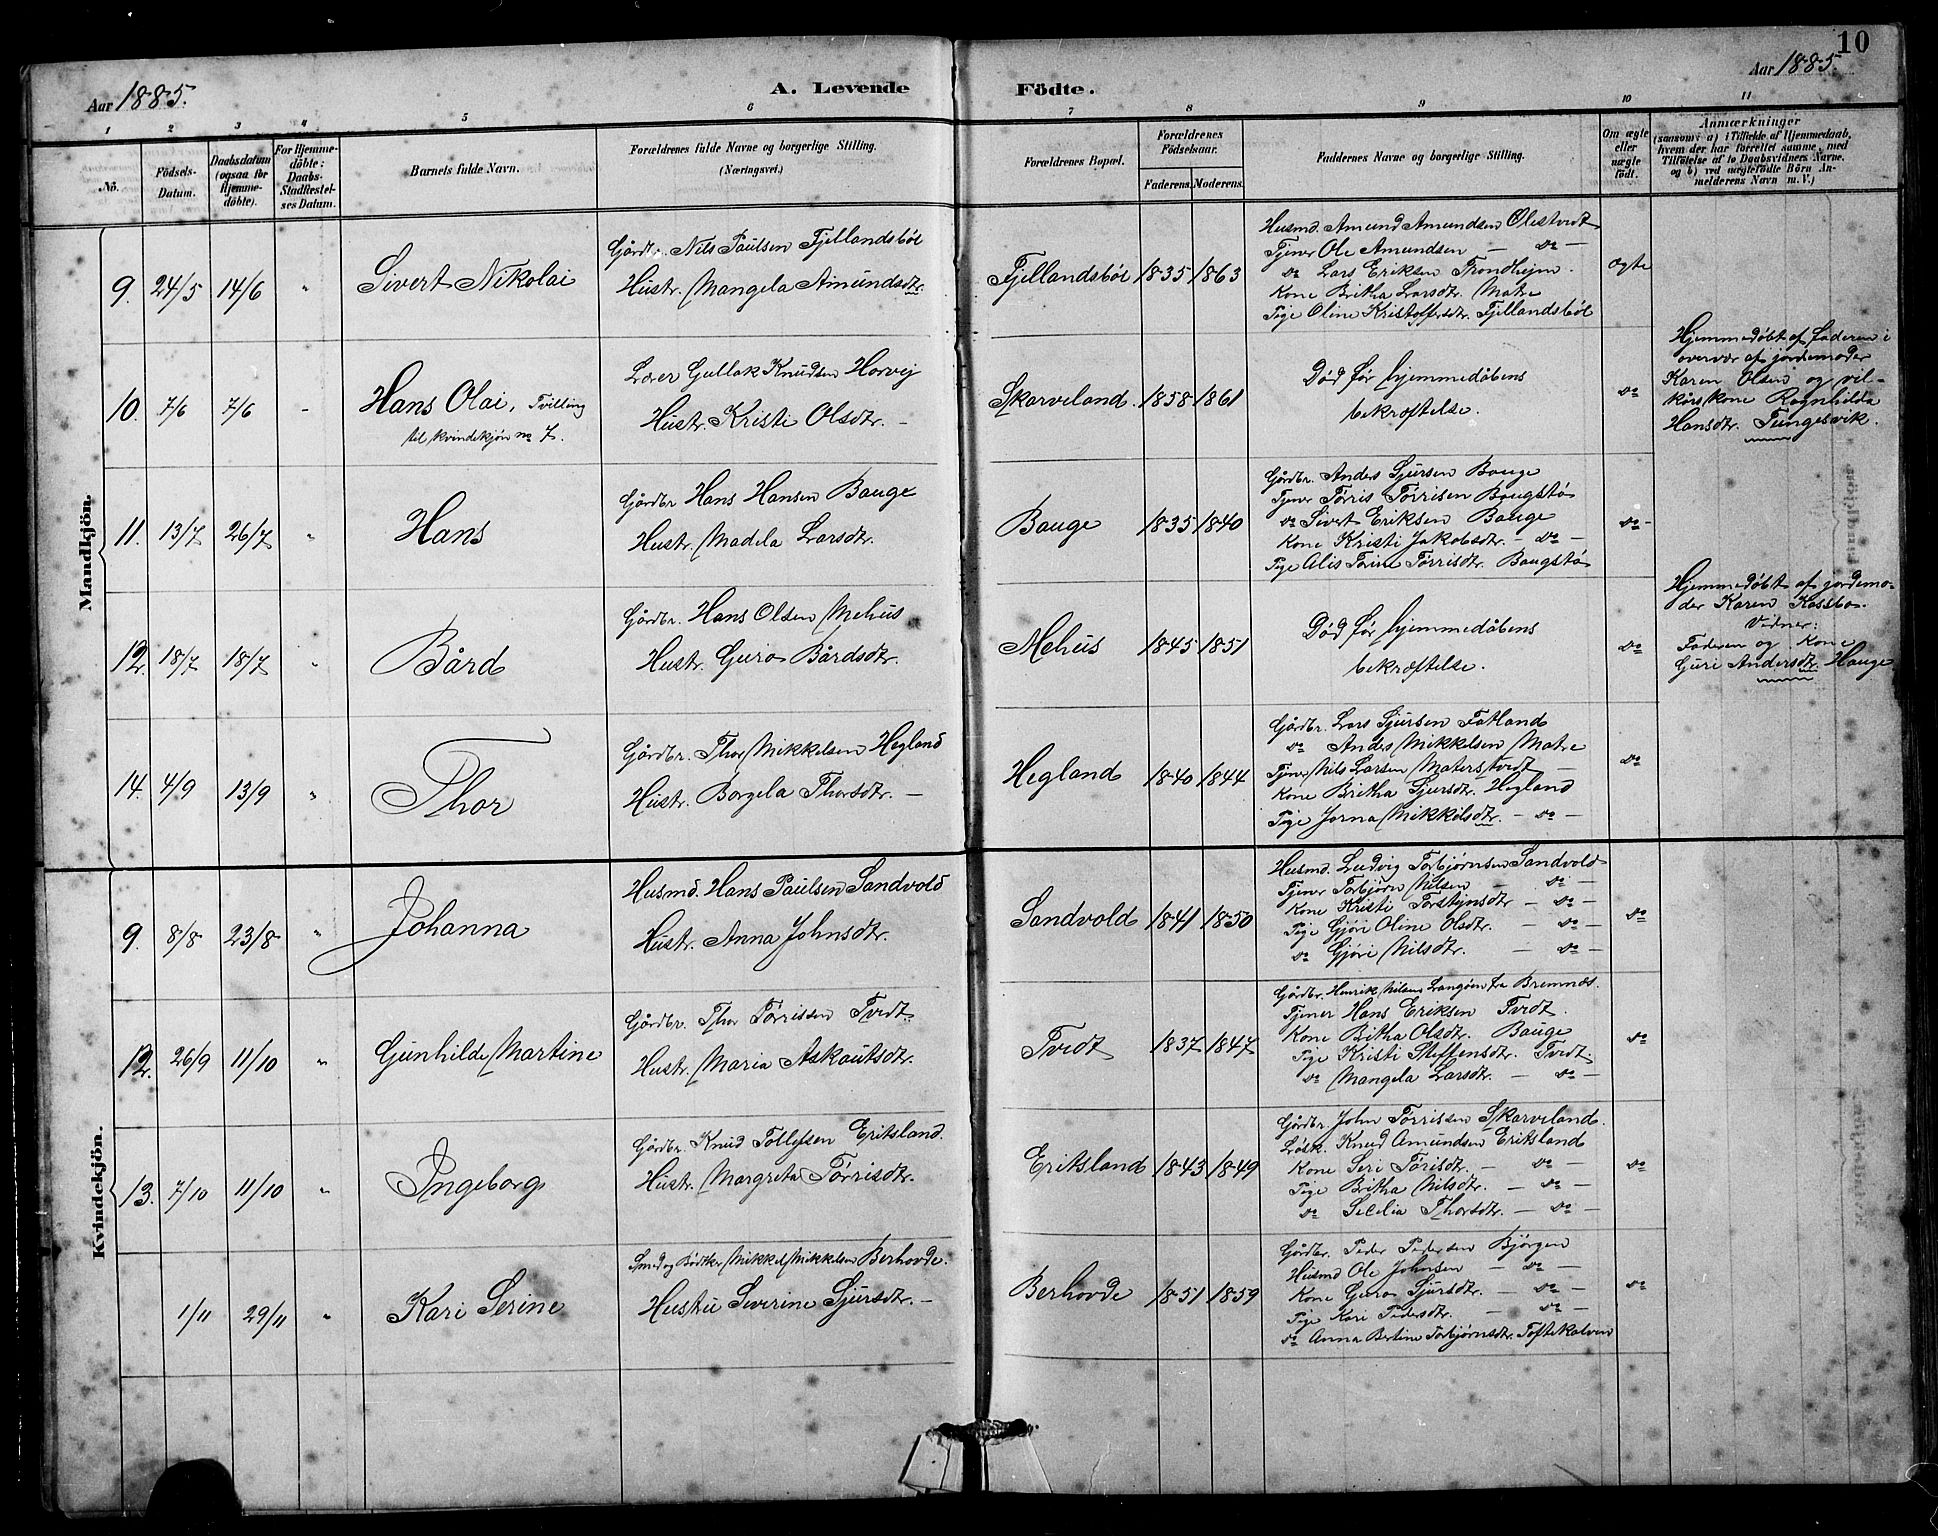 10
Aar 1885.
A. Levende Födte.
Aar 1885.
1 2 3 4 5 6 7 8 9 10 11
No.
Födsels-
Datum.
Daabsdatum
(ogsaa for
Hjemme-
döbte).
For Hjemme-
döbte:
Daabs-
Stadfestel-
ses Datum.
Barnets fulde Navn.
Forældrenes fulde Navne og borgerlige Stilling.
(Næringsvei.)
Forældrenes Bopæl.
Forældrenes
Födselsaar.
Faderens. Moderens.
Faddernes Navne og borgerlige Stilling.
Om ægte
eller
uægte
født.
Anmærkninger
(saasom: a) i Tilfælde af Hjemmedaab,
hvem der har forrettet samme, med
Tilföielse af to Daabsvidners Navne,
og b) ved uægtefödte Börn An-
melderens Navn m. V.)
Mandkjön.
9. 24/5 14/6 "
Sivert Nikolai
Gårdbr. Nils Paulsen Fjellandsbøl
Hustr. Mangela Amundsdtr.
Fjellandsbøl 1835 1863
Husmd. Amund Amundsen Ølestvedt
Tjener Ole Amundsen — do —
do Lars Eriksen Trondheim.
Kone Britha Larsdtr. Matre
Pige Oline Kristoffersdtr. Fjellandsbøl
ægte
10. 7/6 7/6 -
Hans Olai, Tvilling
til kvindekjøn no 7.
Lærer Gullak Knudsen Horvej
Hustr. Kristi Olsdtr. -
Skarveland. 1858 1861
Død før hjemmedåbens
bekræftelse.
do
Hjemmedøbt af faderen i
overvær af jordemoder
Karen Olsen og vil-
kårskone Ragnhilda
Hansdtr. Tungesvik.
11. 13/7 26/7 "
Hans
Gårdbr Hans Hansen Bauge
Hustr. Madela Larsdtr.
Bauge 1835 1840
Gårdbr. Anders Sjursen Bauge
Tjener Tørris Tørrisen Baugstø
do Sivert Eriksen Bauge
Kone Kristi Jakobsdtr. - do -
Pige Alis Torine Tørrisdtr. Baugstø
do -
12. 18/7 18/7 "
Bård
Gårdbr. Hans Olsen Mehus
Hustr. Guro Bårdsdtr.
Mehus 1845 1851
Død før hjemmedåbens
bekræftelse.
do
Hjemmedøbt af jordemo-
der Karen Kossbo.
Vidner:
Faderen og Kone
Guri Andersdtr. Hauge
14. 4/9 13/9 "
Thor
Gårdbr. Thor Mikkelsen Hegland
Hustr. Borgela Thorsdtr. —
Hegland 1840 1844
Gårdbr. Lars Sjursen Fatland
do Anders Mikkelsen Matre
Tjener Nils Larsen Materstvedt —
Kone Britha Sjursdtr. Hegland
Pige Jorna Mikkelsdtr. - do -
do
Kvindekjön.
9. 8/8 23/8 "
Johanna
Husmd. Hans Paulsen Sandvold
Hustr. Anna Johnsdtr.
Sandvold 1841 1850
Husmd. Ludvig Torbjørnsen Sandvold
Tjener Torbjørn Nilsen — do —
Kone Kristi Torstensdtr — do —
Pige Gjøri Oline Olsdtr. — do —
do Gjøri Nilsdtr. — do —
do
12. 26/9 11/10 "
Gunhilde Martine
Gårdbr. Thor Tørrissen Tvedt.
Hustr. Maria Askautsdtr.
Tvedt 1837 1847
Gårdbr. Henrik Nilsen Langøen fra Bremnæs.
Tjener Hans Eriksen Tvedt.
Kone Britha Olsdtr. Bauge
Pige Kristi Steffensdtr. Tvedt.
do Mangela Larsdtr. — do —
do
13. 7/10 11/10 "
Ingeborg
Gårdbr Knud Tollefsen Eritsland.
Hustr. Margreta Tørrisdtr.
Eritsland 1843 1849
Gårdbr. John Tørrissen Skarveland.
Løsk. Knud Amundsen Eritsland
Kone Seri Tørisdtr. — do —
Pige Britha Nilsdtr. — do —
do Secelia Thorsdtr. — do —
do
1/11 29/11 "
Kari Serine
Smed og Bødker Mikkel Mikkelsen Berhovde.
Hustru Severine Sjursdtr. —
Berhovde 1851 1859
Gårdbr. Peder Pedersen Bjørgen
Husmd Ole Johnsen — do —
Kone Guro Sjursdtr. — do —
Pige Kari Pedersdtr. — do —
do Anna Bertine Torbjørnsdtr. Toftekalven
do